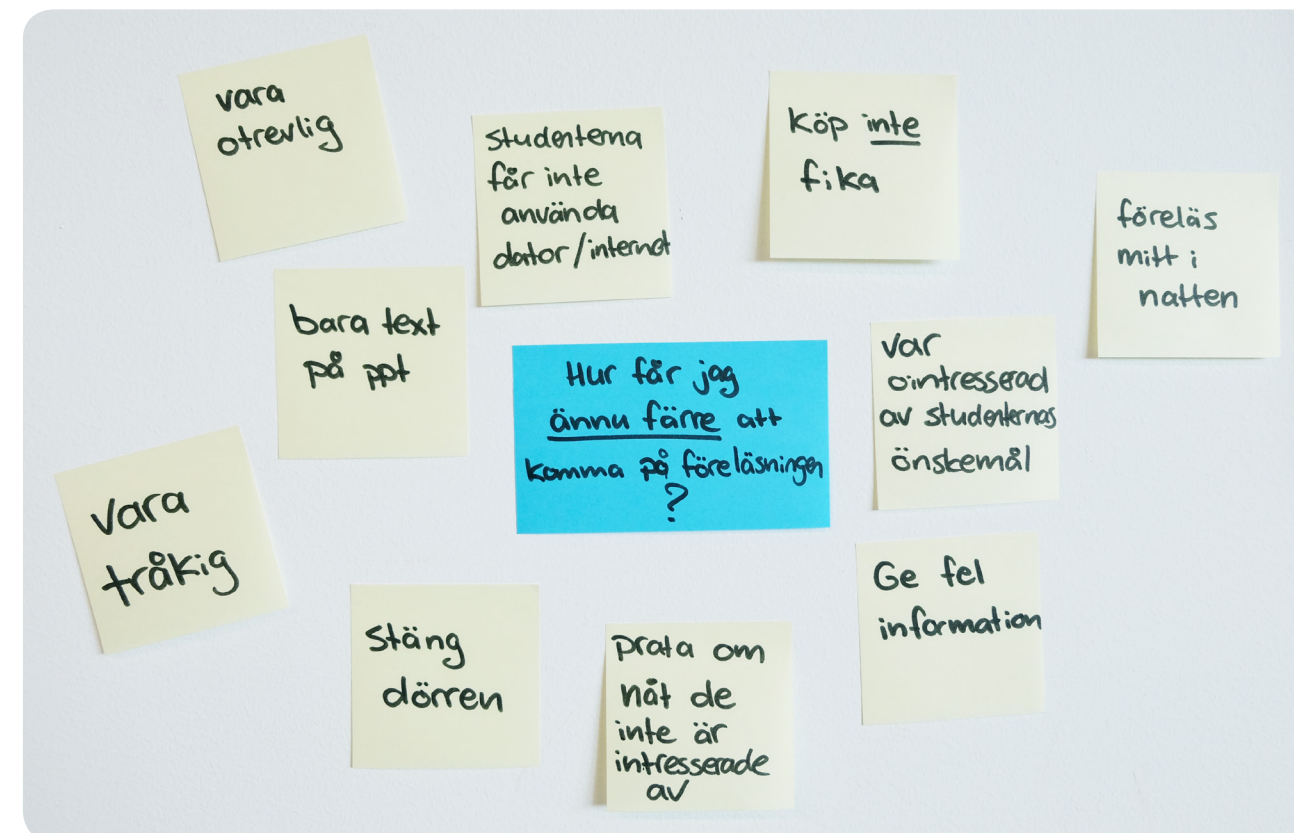 vara
otrevlig
studenterna
får inte
använda
dator/internet
Köp inte
fika
föreläs
mitt i
natten
bara text
på ppt
Hur får jag
ännu färre att
komma på föreläsningen
?
var
ointresserad
av studenternas
önskemål
vara
tråkig
Stäng
dörren
prata om
nåt de
inte är
intresserade
av
Ge fel
information